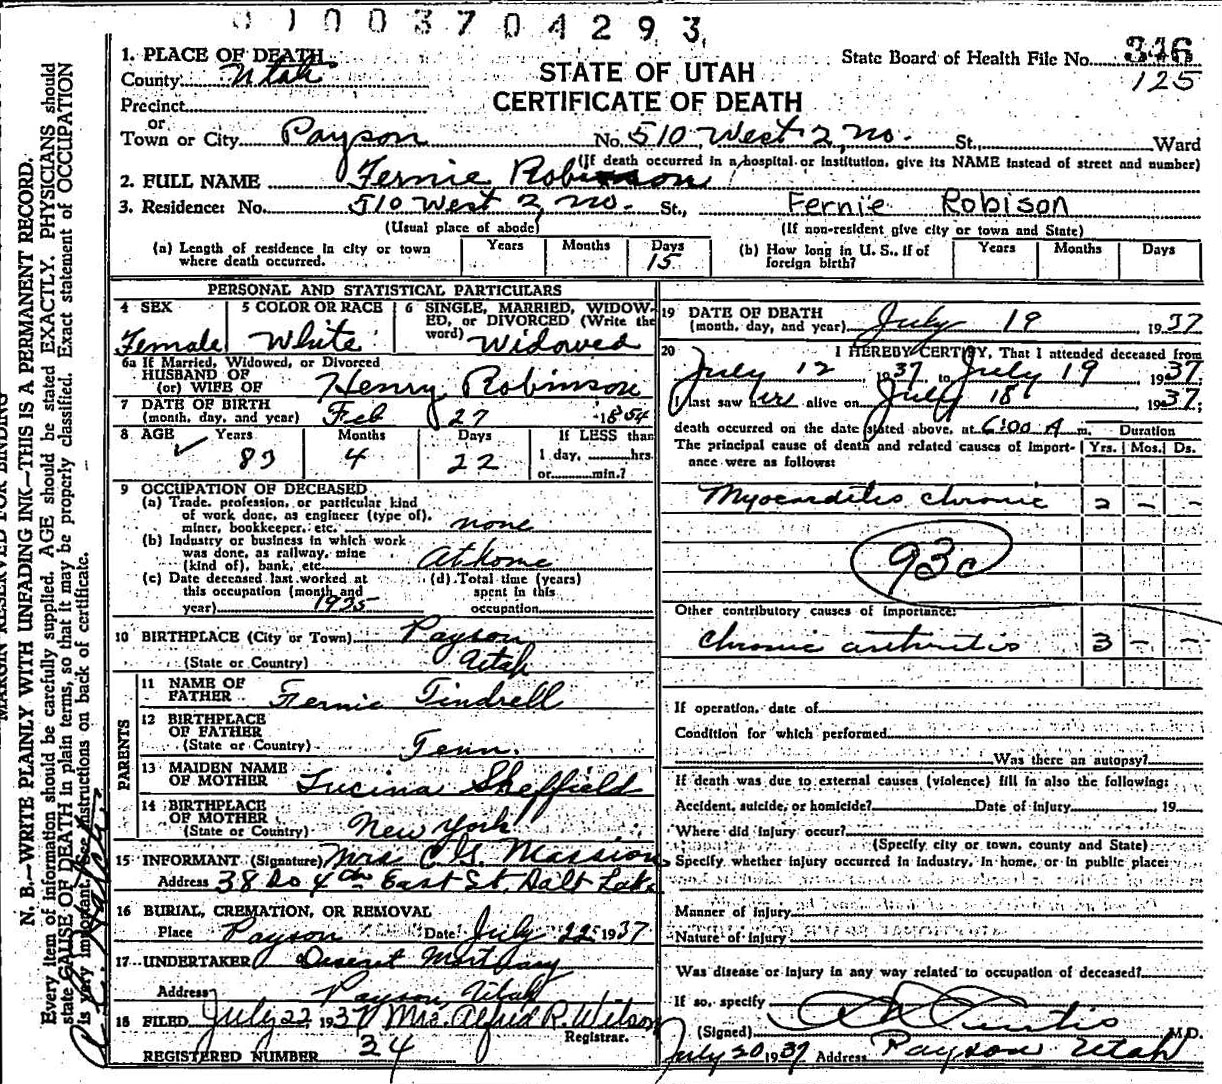 01003704293
1. PLACE OF DEATH
County Utah
Precinct
or
Town or City Payson No. 510 West 2, no. St., Ward
STATE OF UTAH
CERTIFICATE OF DEATH
State Board of Health File No. 346
125
(If death occurred in a hospital or institution, give its NAME instead of street and number)
2. FULL NAME Fernie Robinson
3. Residence: No. 510 West 2, no. St., Fernie Robison
(Usual place of abode) (If non-resident give city or town and State)
(a) Length of residence in city or town where death occurred. Years Months Days 15
(b) How long in U. S., if of foreign birth? Years Months Days
PERSONAL AND STATISTICAL PARTICULARS
4 SEX Female
5 COLOR OR RACE White
6 SINGLE, MARRIED, WIDOWED, or DIVORCED (Write the word) Widowed
6a If Married, Widowed, or Divorced
HUSBAND OF
(or) WIFE OF Henry Robinson
7 DATE OF BIRTH
(month, day, and year) Feb 27 - 1854
8 AGE Years Months Days If LESS than
83 4 22 1 day, hrs.
or min.?
9 OCCUPATION OF DECEASED
(a) Trade, profession, or particular kind
of work done, as engineer (type of),
miner, bookkeeper, etc. none
(b) Industry or business in which work
was done, as railway, mine
(kind of), bank, etc. At home
(c) Date deceased last worked at
this occupation (month and
year) 1935
(d) Total time (years)
spent in this
occupation
10 BIRTHPLACE (City or Town) Payson
(State or Country) Utah
PARENTS
11 NAME OF
FATHER Fernie Tindrell
12 BIRTHPLACE
OF FATHER
(State or Country) Tenn.
13 MAIDEN NAME
OF MOTHER Lucina Sheffield
14 BIRTHPLACE
OF MOTHER
(State or Country) New York
15 INFORMANT (Signature) Mrs C. G. Mission
Address 38 So 4th East St. Salt Lake
16 BURIAL, CREMATION, OR REMOVAL
Place Payson Date July 22 1937
17 UNDERTAKER Deseret Mortuary
Address Payson, Utah
18 FILED July 22 1937 Mrs. Alfred R. Wilson
Registrar.
REGISTERED NUMBER 34
19 DATE OF DEATH
(month, day, and year) July 19 1937
20 I HEREBY CERTIFY, That I attended deceased from
July 12, 1937 to July 19 1937.
I last saw her alive on July 18, 1937;
death occurred on the date stated above, at 6:00 A m. Duration
The principal cause of death and related causes of importance were as follows: Yrs. Mos. Ds.
Myocarditis chronic 2 - -
93c
Other contributory causes of importance:
Chronic arthritis 3 - -
If operation, date of
Condition for which performed
Was there an autopsy?
If death was due to external causes (violence) fill in also the following:
Accident, suicide, or homicide? Date of injury 19
Where did injury occur?
(Specify city or town, county and State)
Specify whether injury occurred in industry, in home, or in public place:
Manner of injury
Nature of injury
Was disease or injury in any way related to occupation of deceased?
If so, specify
(Signed) Curtis M.D.
July 20 1937 Address Payson Utah
MARGIN RESERVED FOR BINDING
N. B.—WRITE PLAINLY WITH UNFADING INK—THIS IS A PERMANENT RECORD.
Every item of information should be carefully supplied. AGE should be stated EXACTLY. PHYSICIANS should
state CAUSE OF DEATH in plain terms, so that it may be properly classified. Exact statement of OCCUPATION
is very important. See instructions on back of certificate.